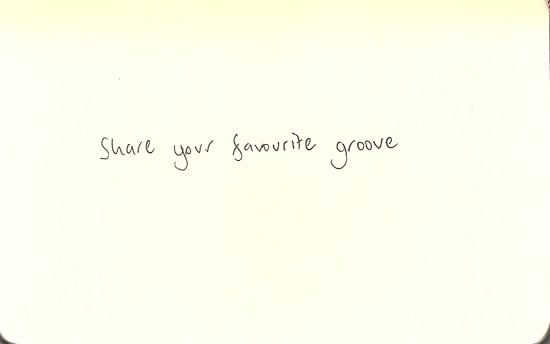 Share your favourite groove